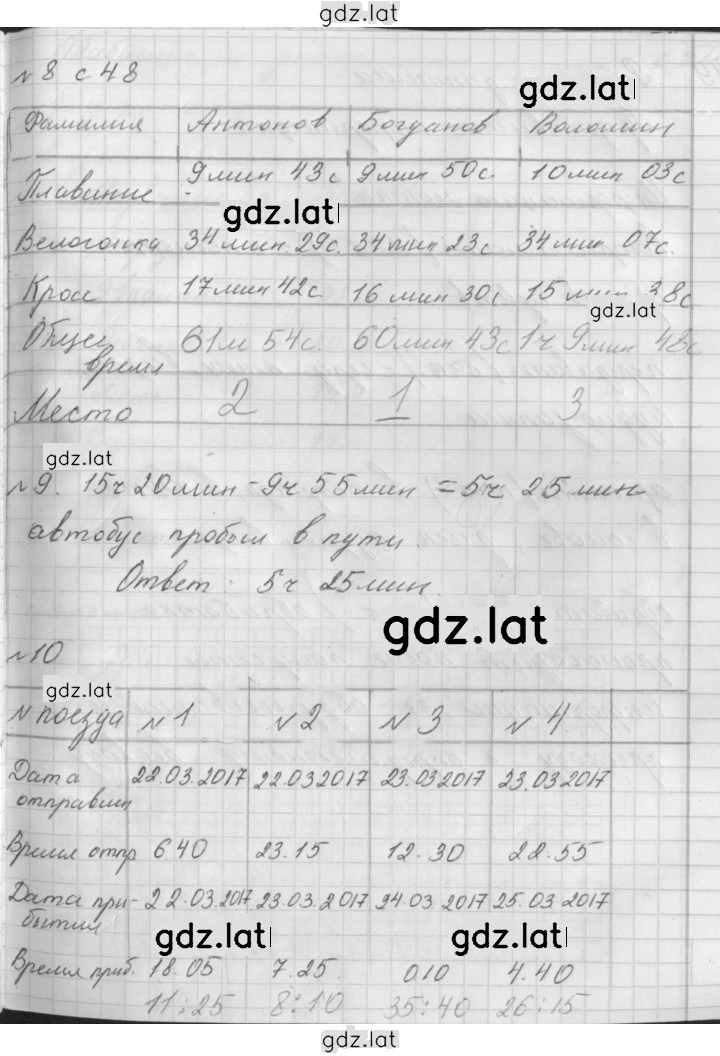 gdz.lat
№8 с 48
gdz.lat
Фамилия Антонов Богданов Волошин
Плавание 9мин 43с 9мин 50с. 10мин 03с
gdz.lat
Велогонка 34мин. 29с. 34мин 23с 34мин 07с.
Кросс 17мин 42с. 16мин 30с 15мин 38с
gdz.lat
Общее время 61м 54с. 60мин 43с 1ч 9мин 48с
Место 2 1 3
gdz.lat
№9. 15ч 20мин - 9ч 55мин = 5ч 25мин
автобус пробыл в пути.
Ответ: 5ч 25мин.
gdz.lat
№10
gdz.lat
№ поезда №1 №2 №3 №4
Дата отправлен 22.03.2017 22.03.2017 23.03.2017 23.03.2017
Время отпр 6.40 23.15 12.30 22.55
Дата прибытия 22.03.2017 23.03.2017 24.03.2017 25.03.2017
gdz.lat gdz.lat
Время приб. 18.05 7.25 0.10 4.40
11:25 8:10 35:40 26:15
gdz.lat